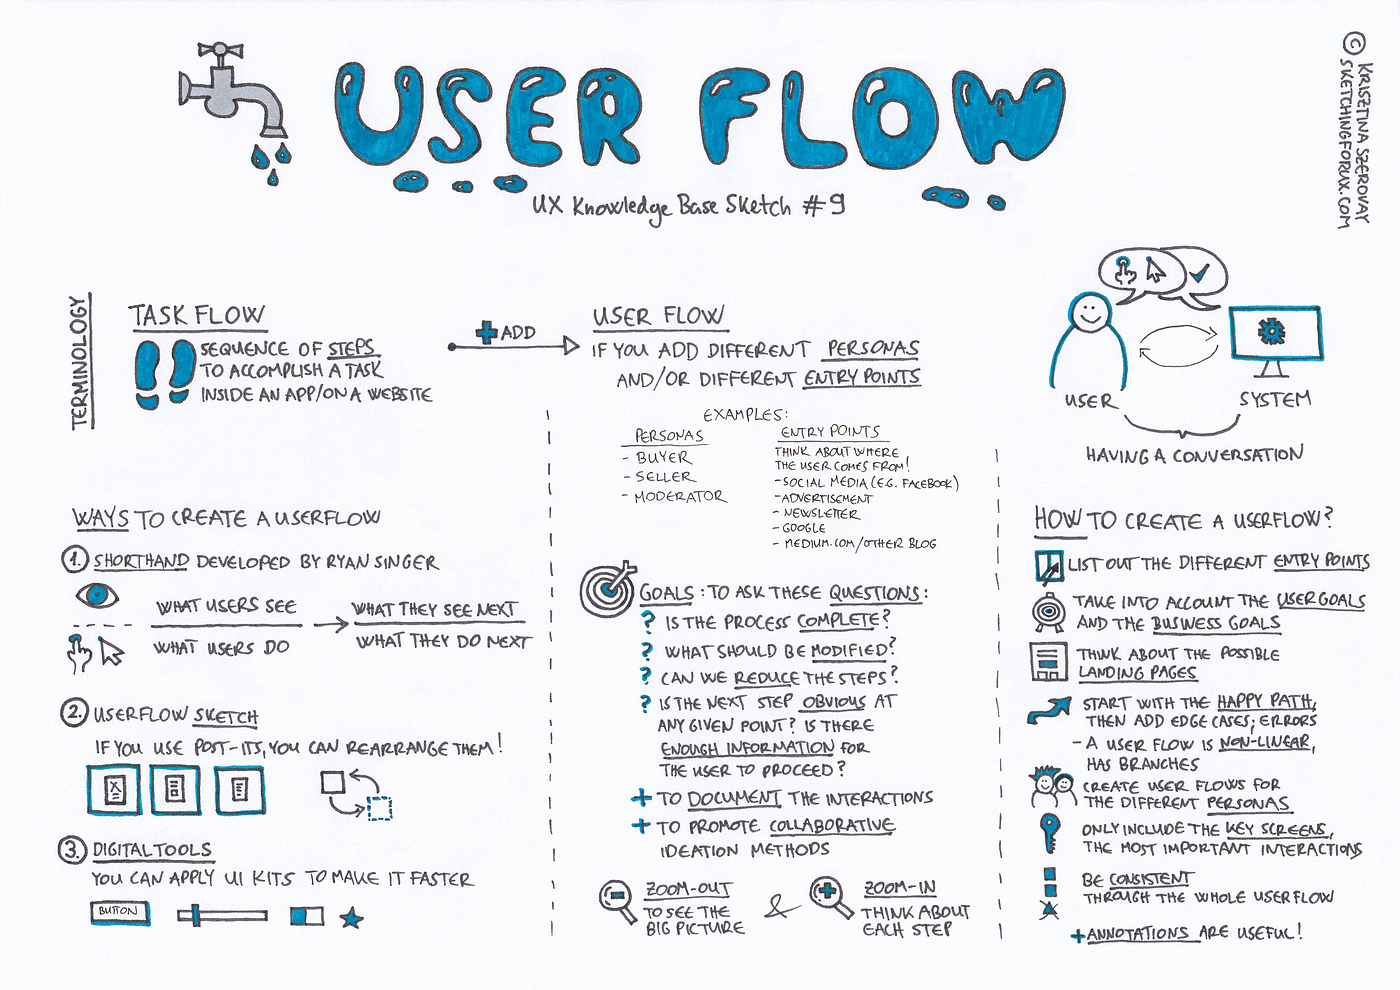 USER FLOW
UX Knowledge Base Sketch #9
© KRISZTINA SZEROVAY
SKETCHINGFORUX.COM
TERMINOLOGY
TASK FLOW
SEQUENCE OF STEPS
TO ACCOMPLISH A TASK
INSIDE AN APP/ON A WEBSITE
+ ADD
USER FLOW
IF YOU ADD DIFFERENT PERSONAS
AND/OR DIFFERENT ENTRY POINTS
EXAMPLES:
PERSONAS
- BUYER
- SELLER
- MODERATOR
ENTRY POINTS
THINK ABOUT WHERE
THE USER COMES FROM!
- SOCIAL MEDIA (E.G. FACEBOOK)
- ADVERTISEMENT
- NEWSLETTER
- GOOGLE
- MEDIUM.COM/OTHER BLOG
USER
SYSTEM
HAVING A CONVERSATION
WAYS TO CREATE A USERFLOW
1. SHORTHAND DEVELOPED BY RYAN SINGER
WHAT USERS SEE
WHAT USERS DO
WHAT THEY SEE NEXT
WHAT THEY DO NEXT
2. USERFLOW SKETCH
IF YOU USE POST-ITS, YOU CAN REARRANGE THEM!
3. DIGITAL TOOLS
YOU CAN APPLY UI KITS TO MAKE IT FASTER
BUTTON
GOALS: TO ASK THESE QUESTIONS:
? IS THE PROCESS COMPLETE?
? WHAT SHOULD BE MODIFIED?
? CAN WE REDUCE THE STEPS?
? IS THE NEXT STEP OBVIOUS AT
ANY GIVEN POINT? IS THERE
ENOUGH INFORMATION FOR
THE USER TO PROCEED?
+ TO DOCUMENT THE INTERACTIONS
+ TO PROMOTE COLLABORATIVE
IDEATION METHODS
ZOOM-OUT
TO SEE THE
BIG PICTURE
&
ZOOM-IN
THINK ABOUT
EACH STEP
HOW TO CREATE A USERFLOW?
LIST OUT THE DIFFERENT ENTRY POINTS
TAKE INTO ACCOUNT THE USER GOALS
AND THE BUSINESS GOALS
THINK ABOUT THE POSSIBLE
LANDING PAGES
START WITH THE HAPPY PATH,
THEN ADD EDGE CASES; ERRORS
- A USER FLOW IS NON-LINEAR,
HAS BRANCHES
CREATE USER FLOWS FOR
THE DIFFERENT PERSONAS
ONLY INCLUDE THE KEY SCREENS,
THE MOST IMPORTANT INTERACTIONS
BE CONSISTENT
THROUGH THE WHOLE USERFLOW
+ ANNOTATIONS ARE USEFUL!